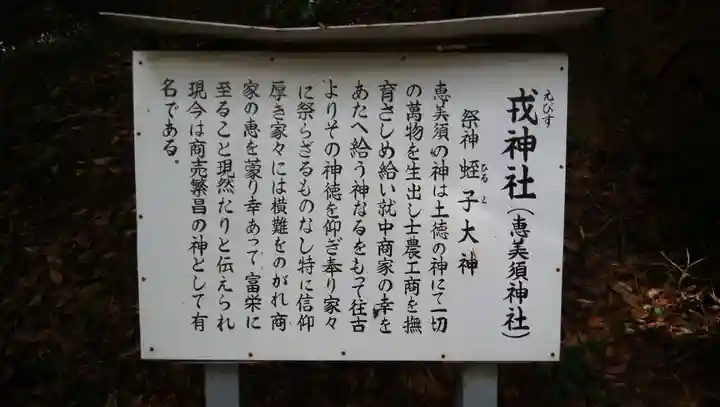 戎神社(恵美須神社)
えびす
祭神 蛭子大神
ひる こ
恵美須の神は土徳の神にて一切
の萬物を生出し士農工商を撫
育さしめ給い就中商家の幸を
あたへ給う神なるをもって往古
よりその神徳を仰ぎ奉り家々
に祭らざるものなし特に信仰
厚き家々には横難をのがれ商
家の恵を蒙り幸あって富栄に
至ること現然たりと伝えられ
現今は商売繁昌の神として有
名である。